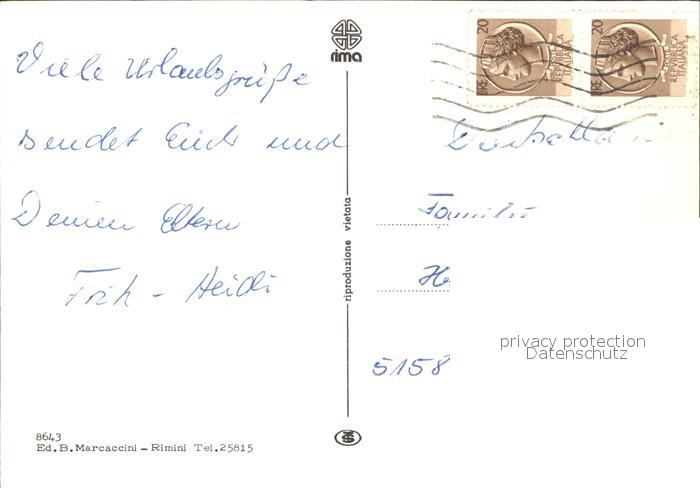 rima
20
LIRE
REPUBBLICA
ITALIANA
20
LIRE
REPUBBLICA
ITALIANA
Viele Urlaubsgrüße
sendet Euch und
Deinen Eltern
Heidi
Familie
He
5158
riproduzione vietata
privacy protection
Datenschutz
8643
Ed. B. Marcaccini – Rimini Tel. 25815